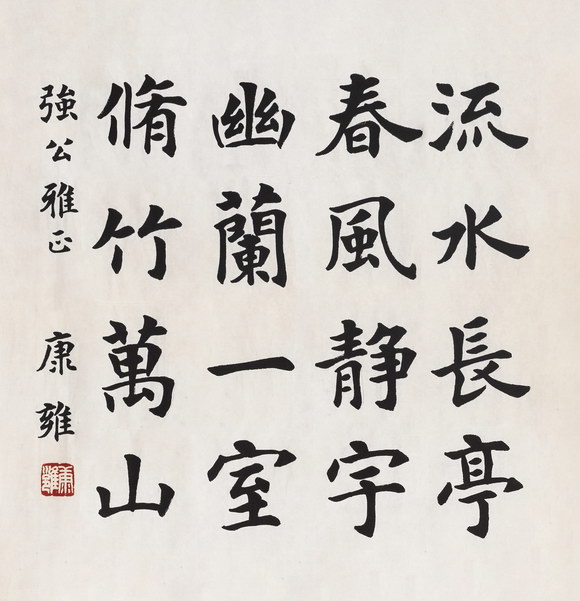 流水長亭
春風静宇
幽蘭一室
脩竹萬山
強公雅正 康雍
康雍